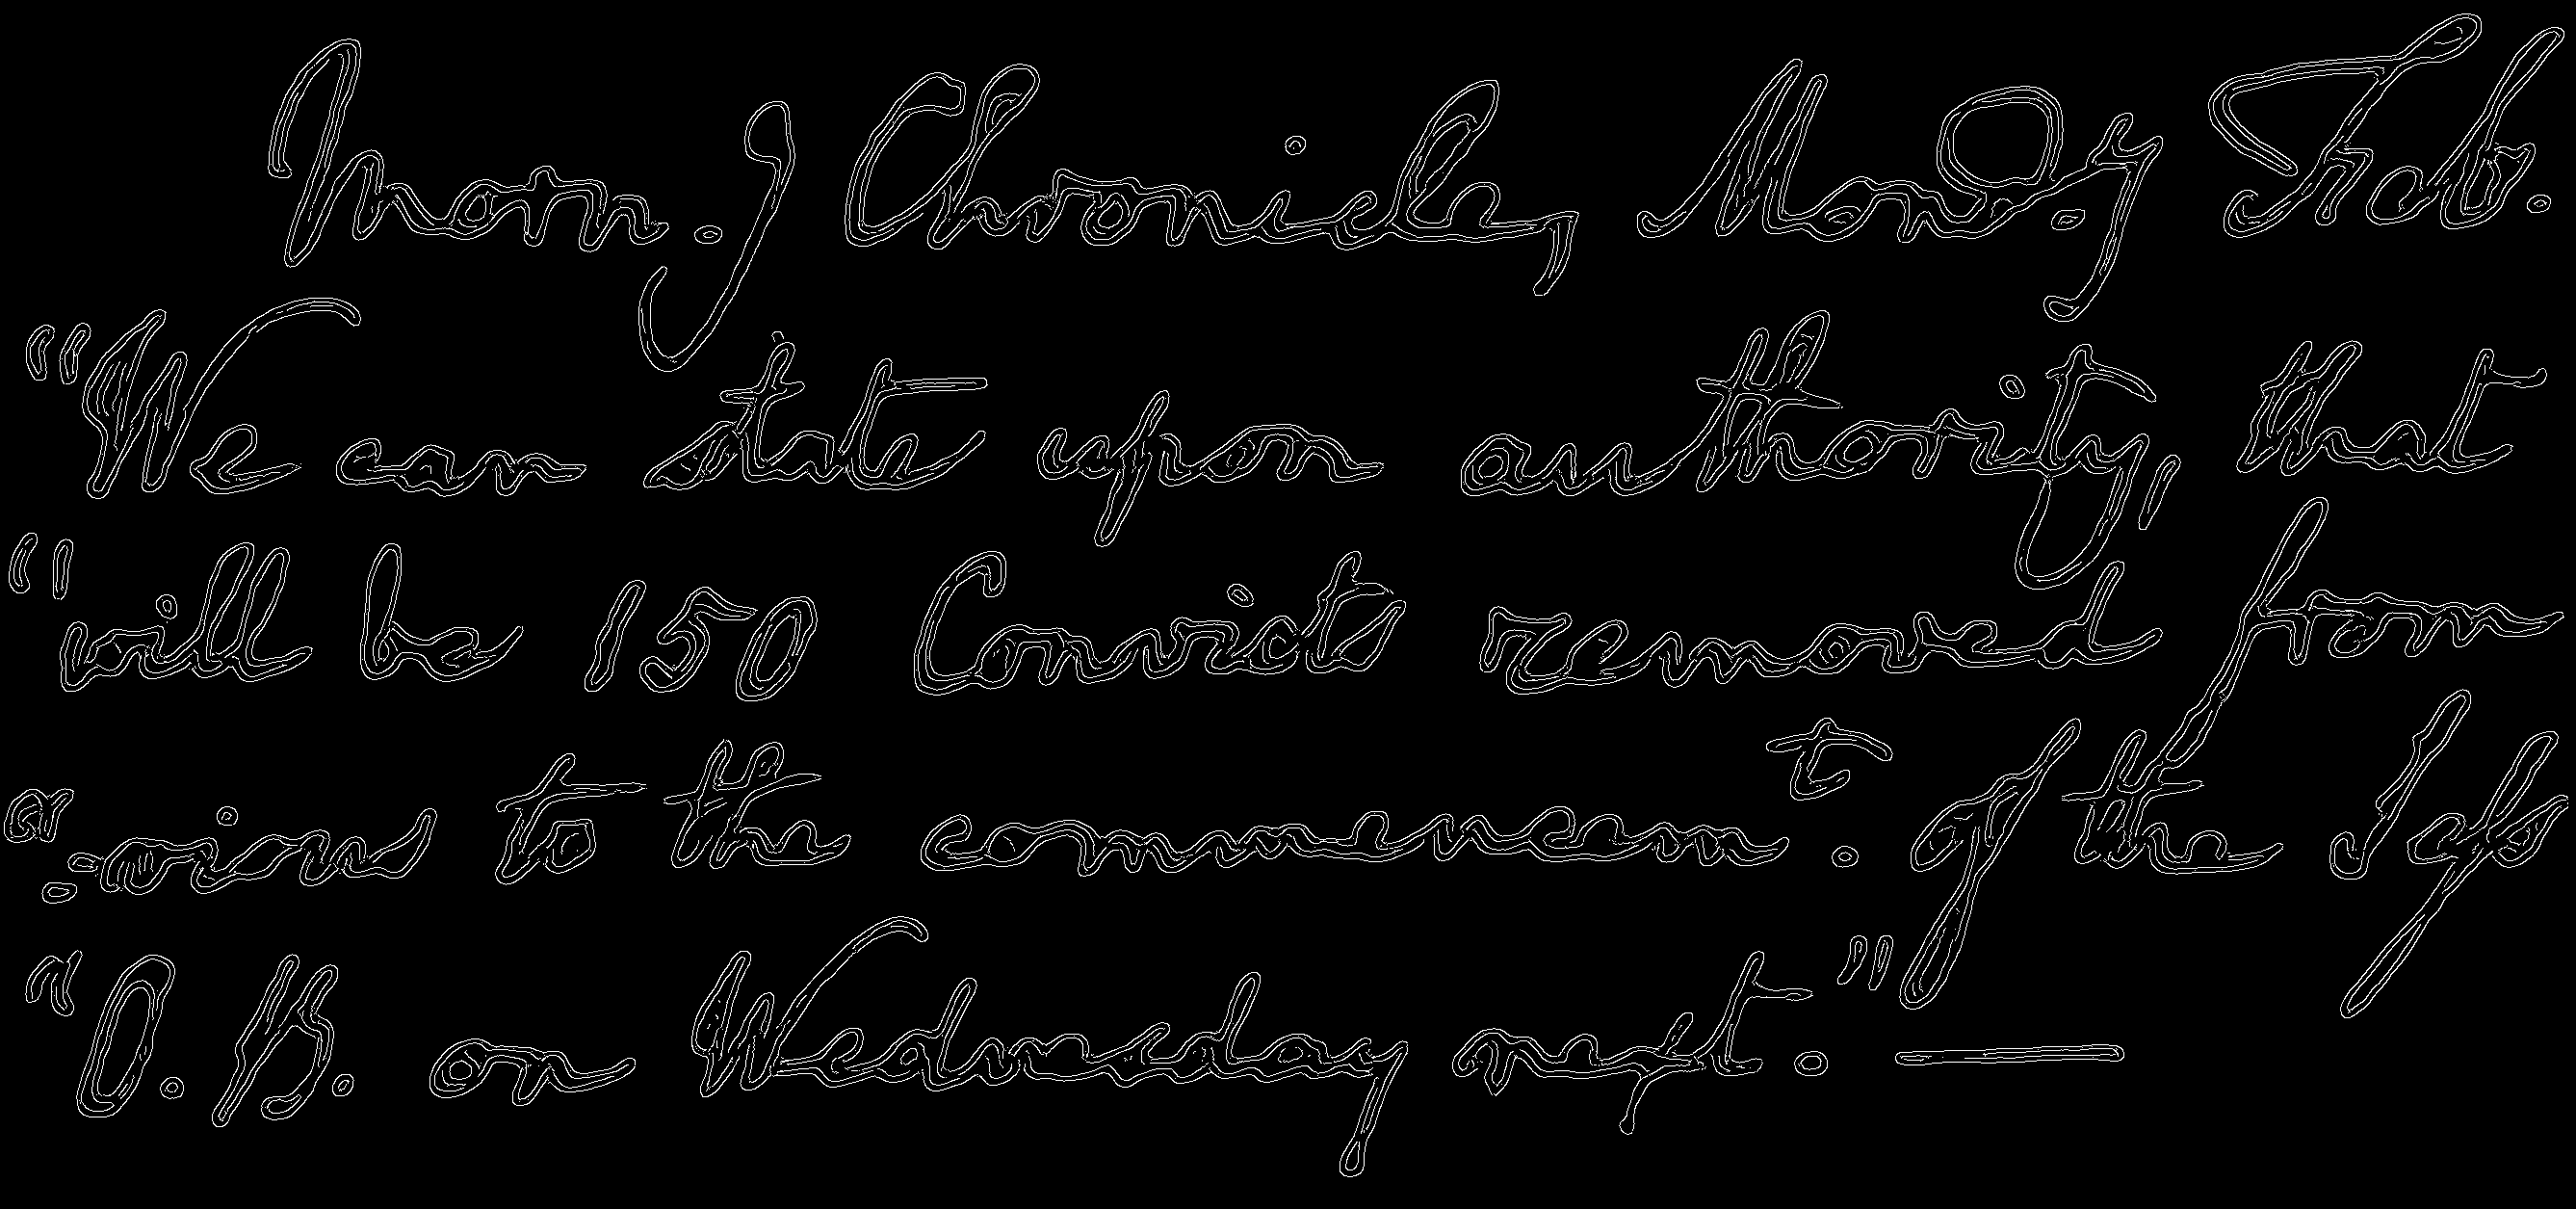 Morn.g Chronicle, Mond.y Feb.
"We can state upon authority, that
"will be 150 Convicts removed from
"-vious to the commencem.t of the Seſs
"O. B. on Wednesday next." —